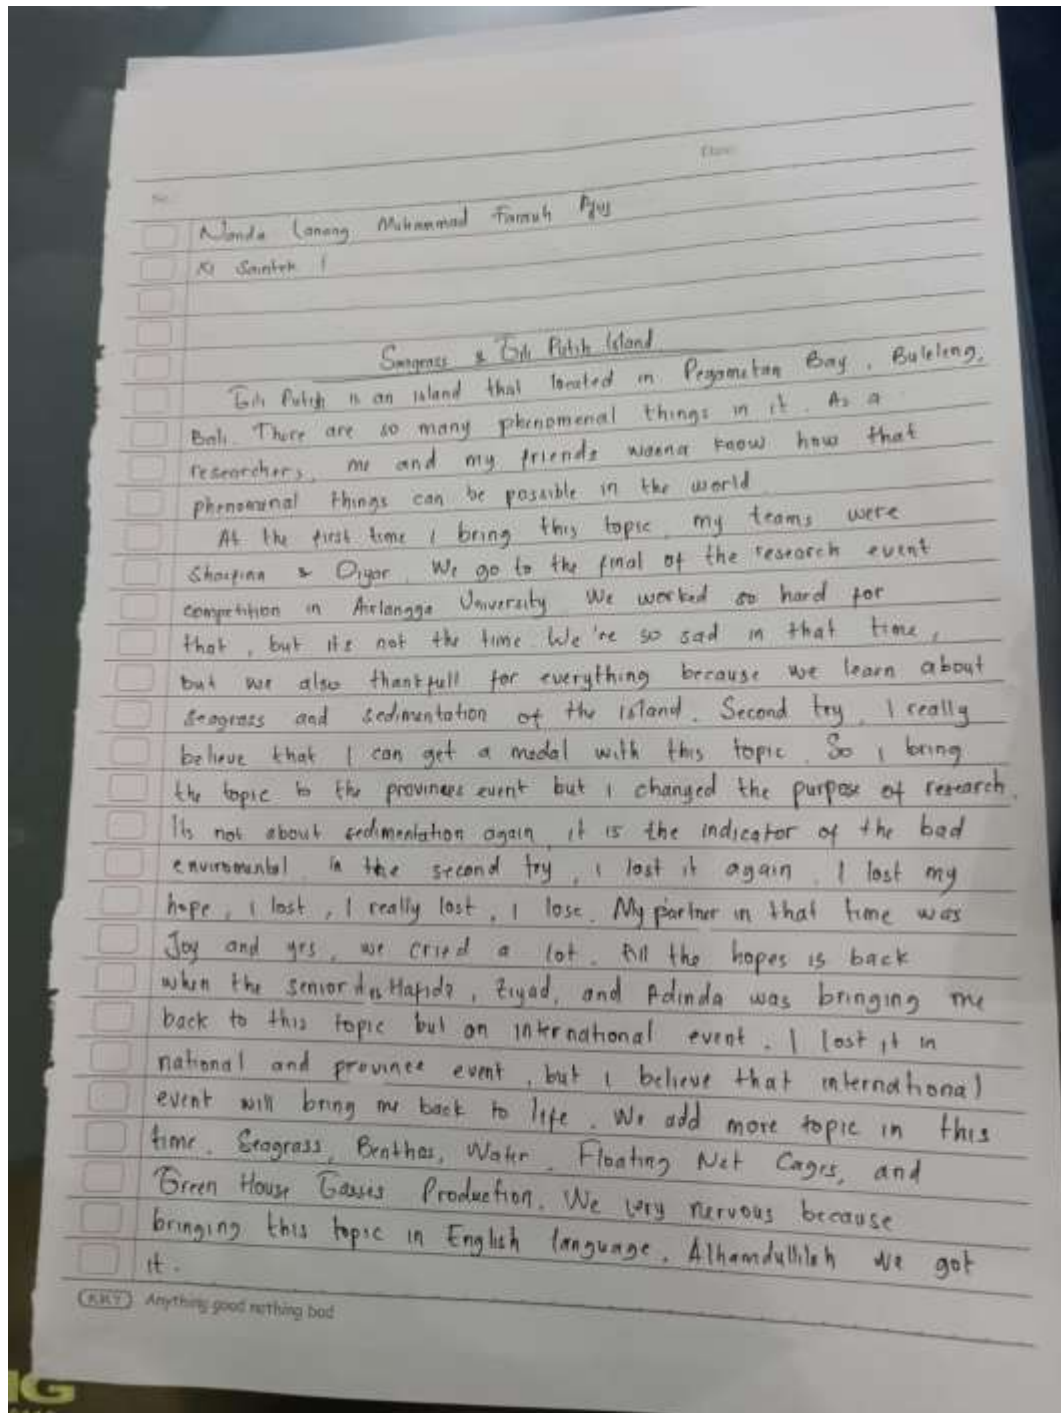 No.
Date:
Nanda Lanang Muhammad
XI Saintek 1
Seagrass & Gili Putih Island
Gili Putih is an island that located in Pegametan Bay, Buleleng,
Bali. There are so many phenomenal things in it. As a
researchers, me and my friends wanna know how that
phenomenal things can be possible in the world
At the first time I bring this topic, my teams were
& We go to the final of the research event
competition in Airlangga University. We worked so hard for
that, but its not the time. We're so sad in that time,
but we also thankfull for everything because we learn about
seagrass and sedimentation of the island. Second try, I really
believe that I can get a medal with this topic. So I bring
the topic to the provinces event but I changed the purpose of research.
Its not about sedimentation again, it is the indicator of the bad
enviromental. in the second try, I lost it again. I lost my
hope, I lost, I really lost, I lose. My partner in that time was
Joy and yes, we cried a lot. All the hopes is back
when the senior Hafidz, Ziyad, and Adinda was bringing me
back to this topic but on international event. I lost it in
national and province event, but I believe that international
event will bring me back to life. We add more topic in this
time. Seagrass, Benthos, Water, Floating Net Cages, and
Green House Gasses Production. We very nervous because
bringing this topic in English language. Alhamdulliloh we got
it.
KKY Anything good nothing bad
G